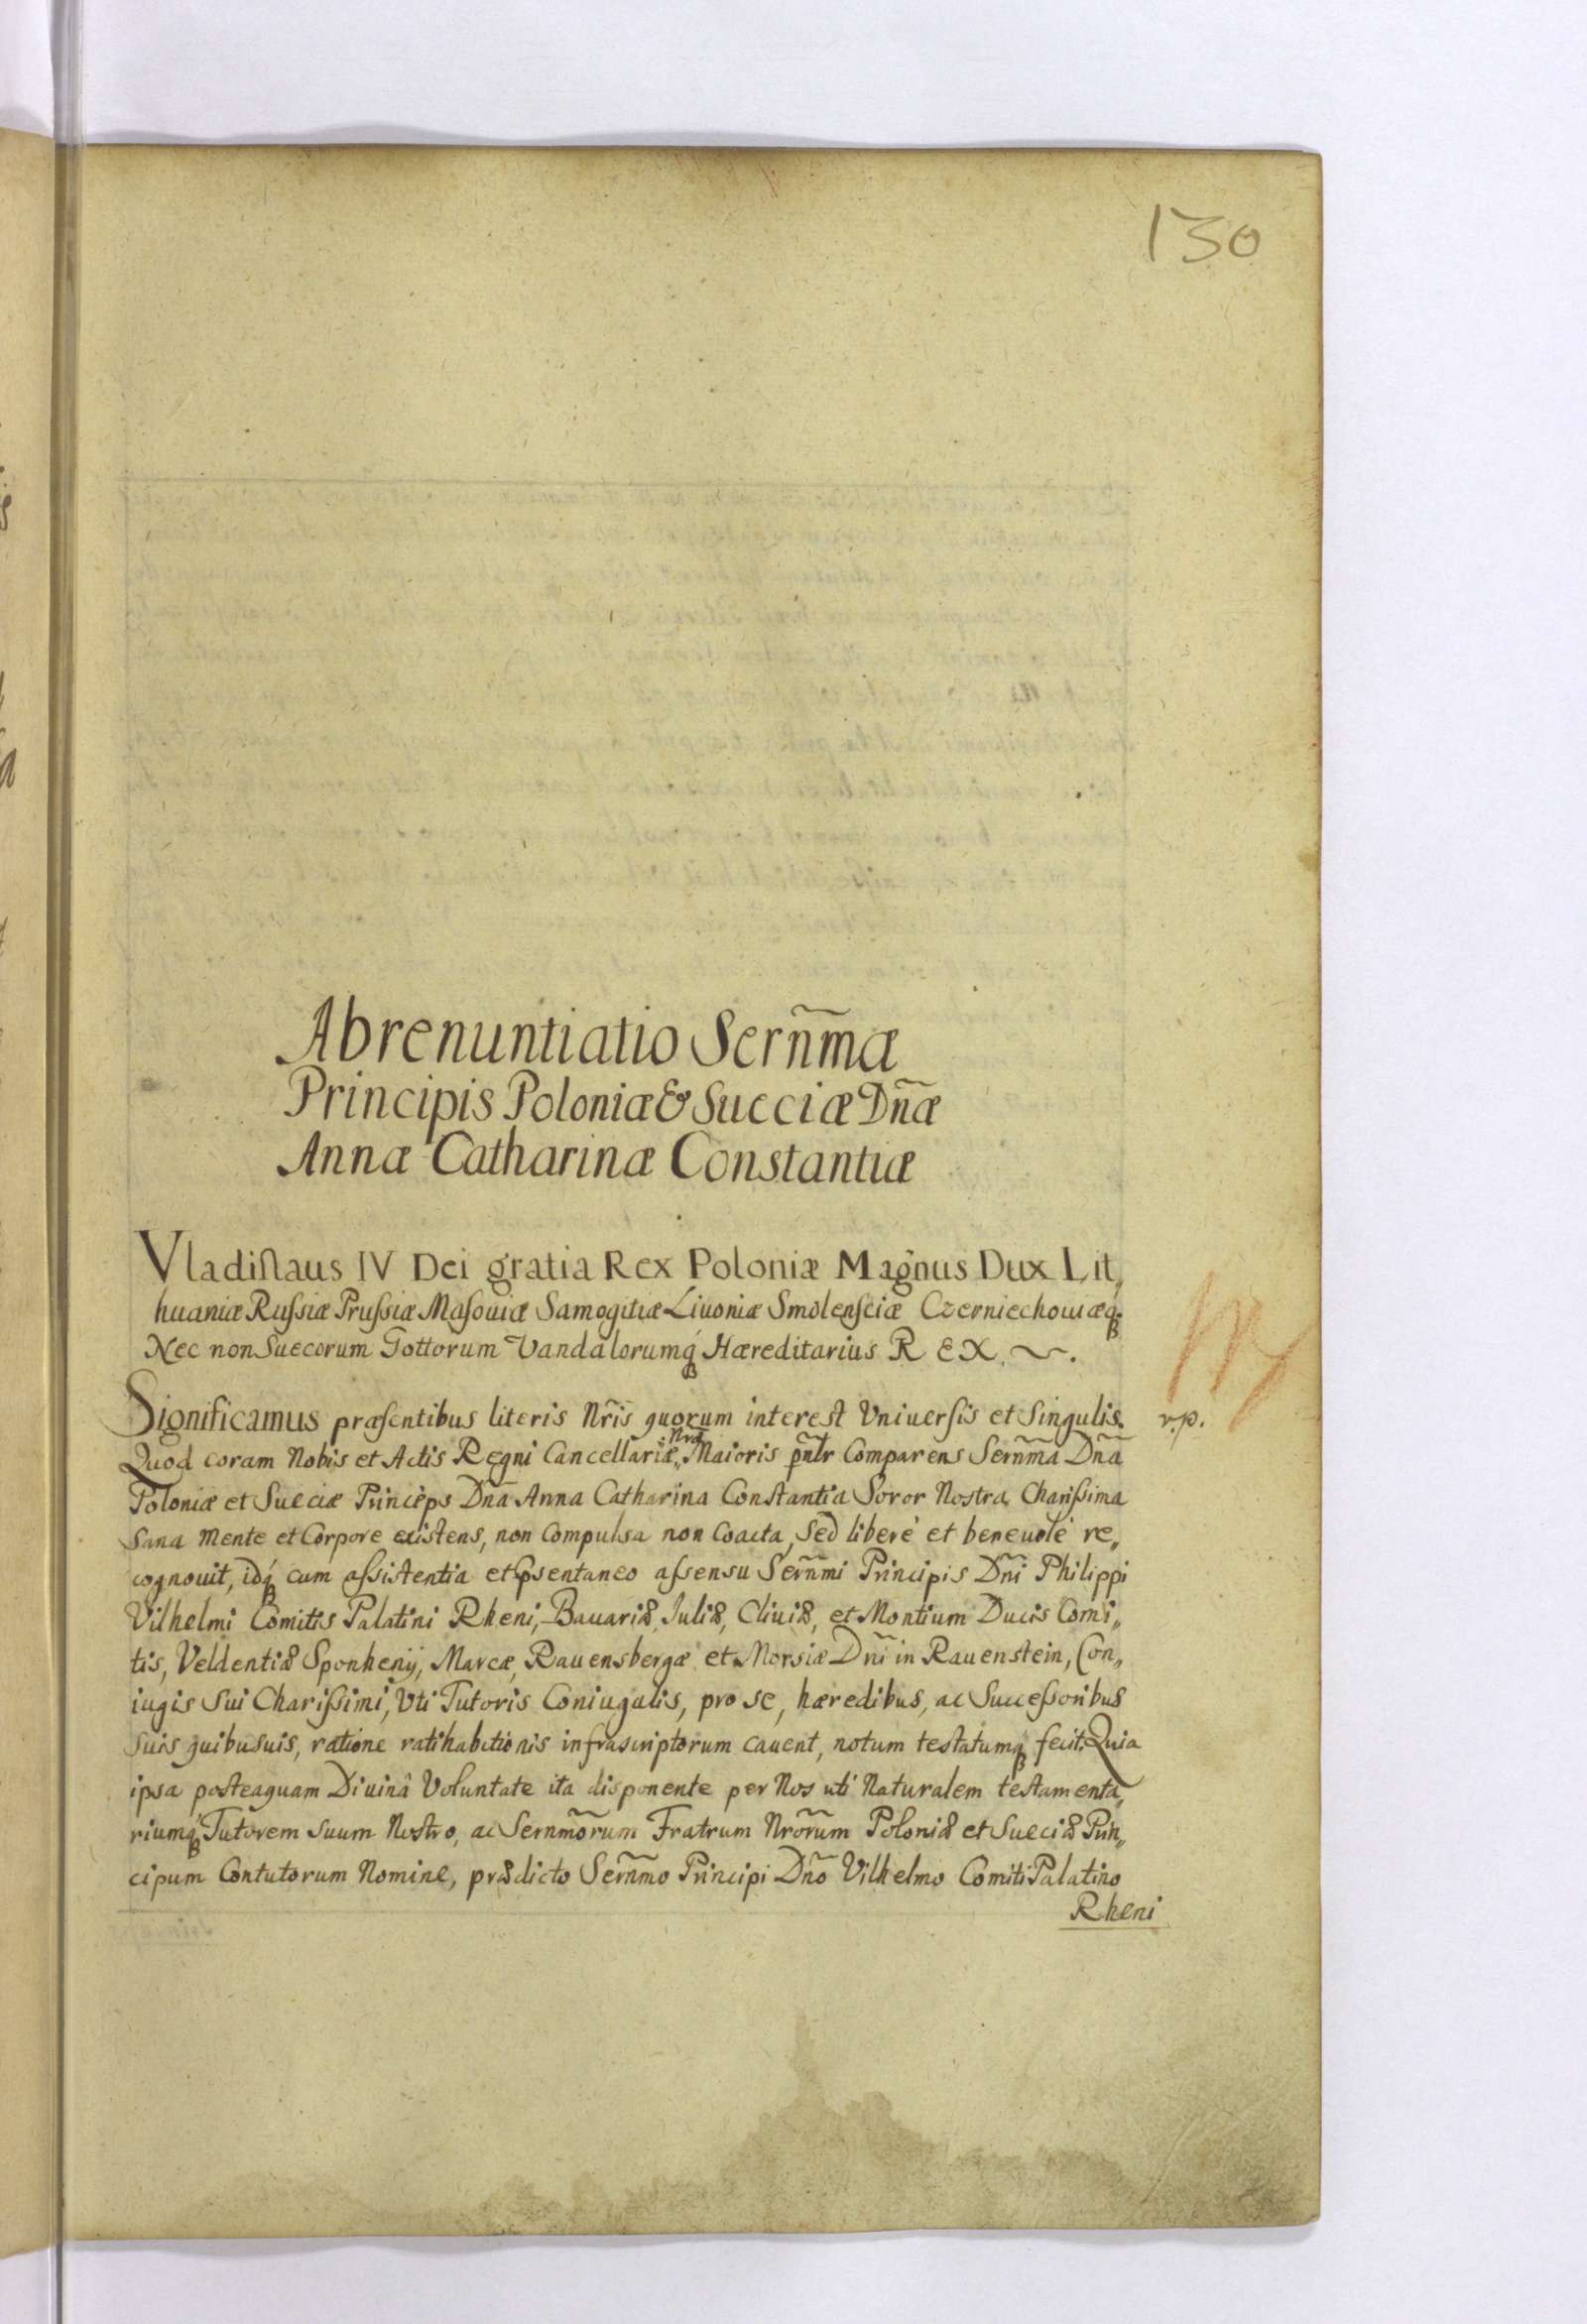 130
Abrenuntiatio Sern̄mæ
Principis Poloniæ & Sueciæ Dn̄æ
Annæ Catharinæ Constantiæ
Vladislaus IV Dei gratia Rex Poloniæ Magnus Dux Lit,,
huaniæ Russiæ Prussiæ Masouiæ Samogitiæ Liuoniæ Smolensciæ Czerniechouiæq.
Nec non Suecorum Gottorum Vandalorumq́ Hæreditarius REX.
Significamus præsentibus literis Nr̄is quorum interest Vniuersis et Singulis. r.p.
Quod coram Nobis et Actis Regni Cancellariæ Nræ Maioris pn̄lr Comparens Sern̄ma Dn̄a
Poloniæ et Sueciæ Princeps Dn̄a Anna Catharina Constantia Soror Nostra Charissima
Sana mente et Corpore existens, non Compulsa non Coacta, Sed liberè et beneuolè re,,
cognouit, idq́ cum assistentia et Psentaneo assensu Sern̄mi Principis Dn̄i Philippi
Vilhelmi Comitis Palatini Rheni, Bauariæ, Juliæ, Cliuiæ, et Montium Ducis Comi,,
tis, Veldentiæ Sponhenij, Marcæ, Rauensbergæ et Morsiæ Dn̄i in Rauenstein, Con,,
iugis Sui Charissimi, Vti Tutoris Coniugalis, pro se, hæredibus, ac Successoribus
Suis quibusuis, ratione ratihabitionis infrascriptorum cauent, notum testatumq́ fecit. Quia
ipsa posteaquam Diuinâ Voluntate ita disponente per Nos uti Naturalem testamenta,,
riumq́ Tutorem suum Nostro, ac Sern̄morum Fratrum Nr̄orum Poloniæ et Sueciæ Prin,,
cipum Contutorum Nomine, prædicto Sern̄mo Principi Dn̄o Vilhelmo Comiti Palatino
Rheni